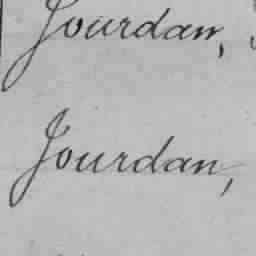 Jourdan,
Jourdan,